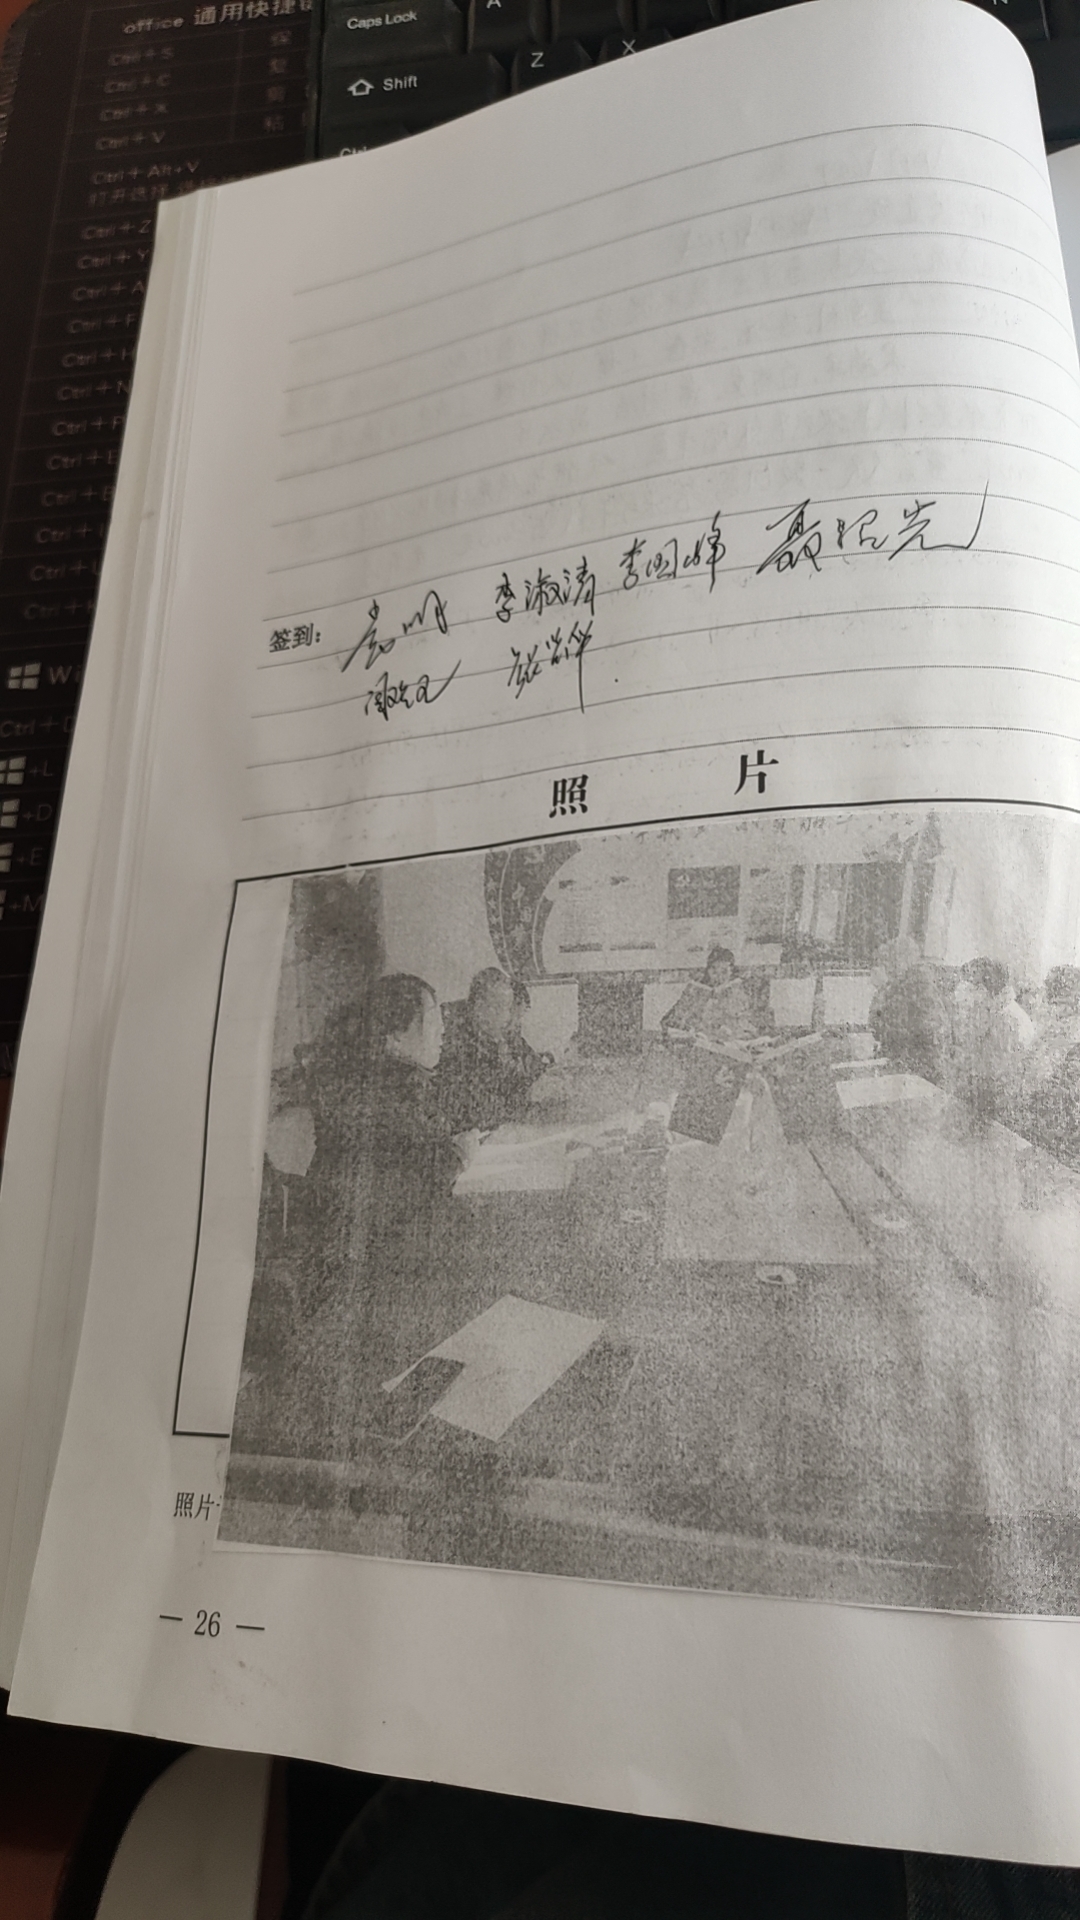 office 通用快捷键
Ctrl+S 保
Ctrl+C 复
Ctrl+X 剪
Ctrl+V 粘
Ctrl+Alt+V
打开选择
Ctrl+Z
Ctrl+Y
Ctrl+A
Ctrl+F
Ctrl+H
Ctrl+N
Ctrl+P
Ctrl+E
Ctrl+B
Ctrl+I
Ctrl+U
Ctrl+
Wi
Ctrl+D
+L
+D
+E
+M
Caps Lock
A
Shift
Z
X
Ctrl
N
签到: 袁明 李淑涛 李国峰 聂绍光
张
照 片
中国
照片
— 26 —